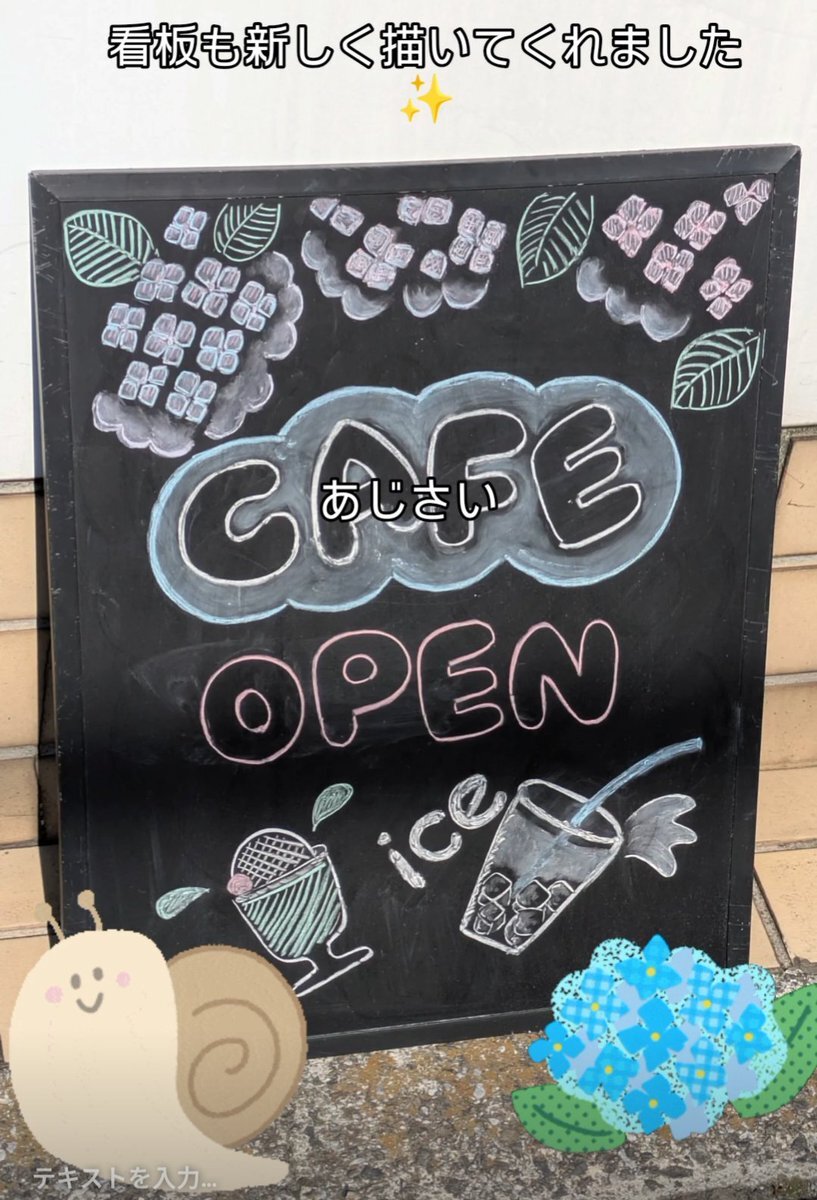 看板も新しく描いてくれました
✨
CAFE
あじさい
OPEN
ice
テキストを入力...